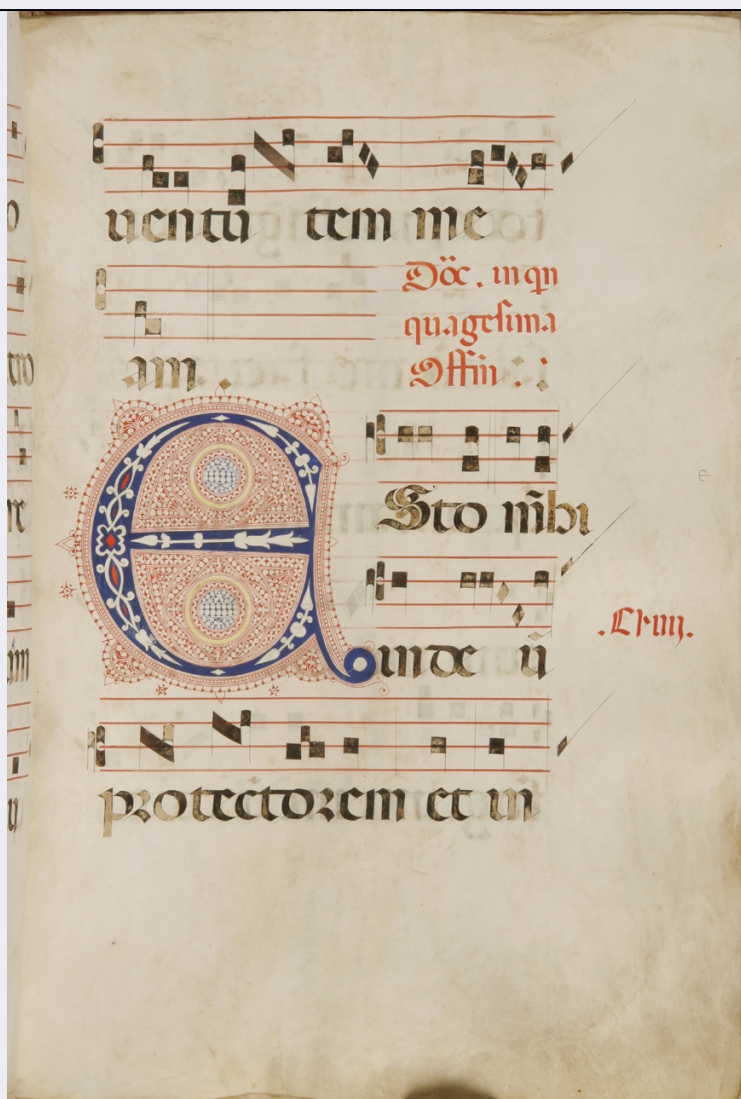 uentu tem me
am .
Dõc . in qn
quagesima
Offin . :
ESto mihi
in de ū
protectorem et in